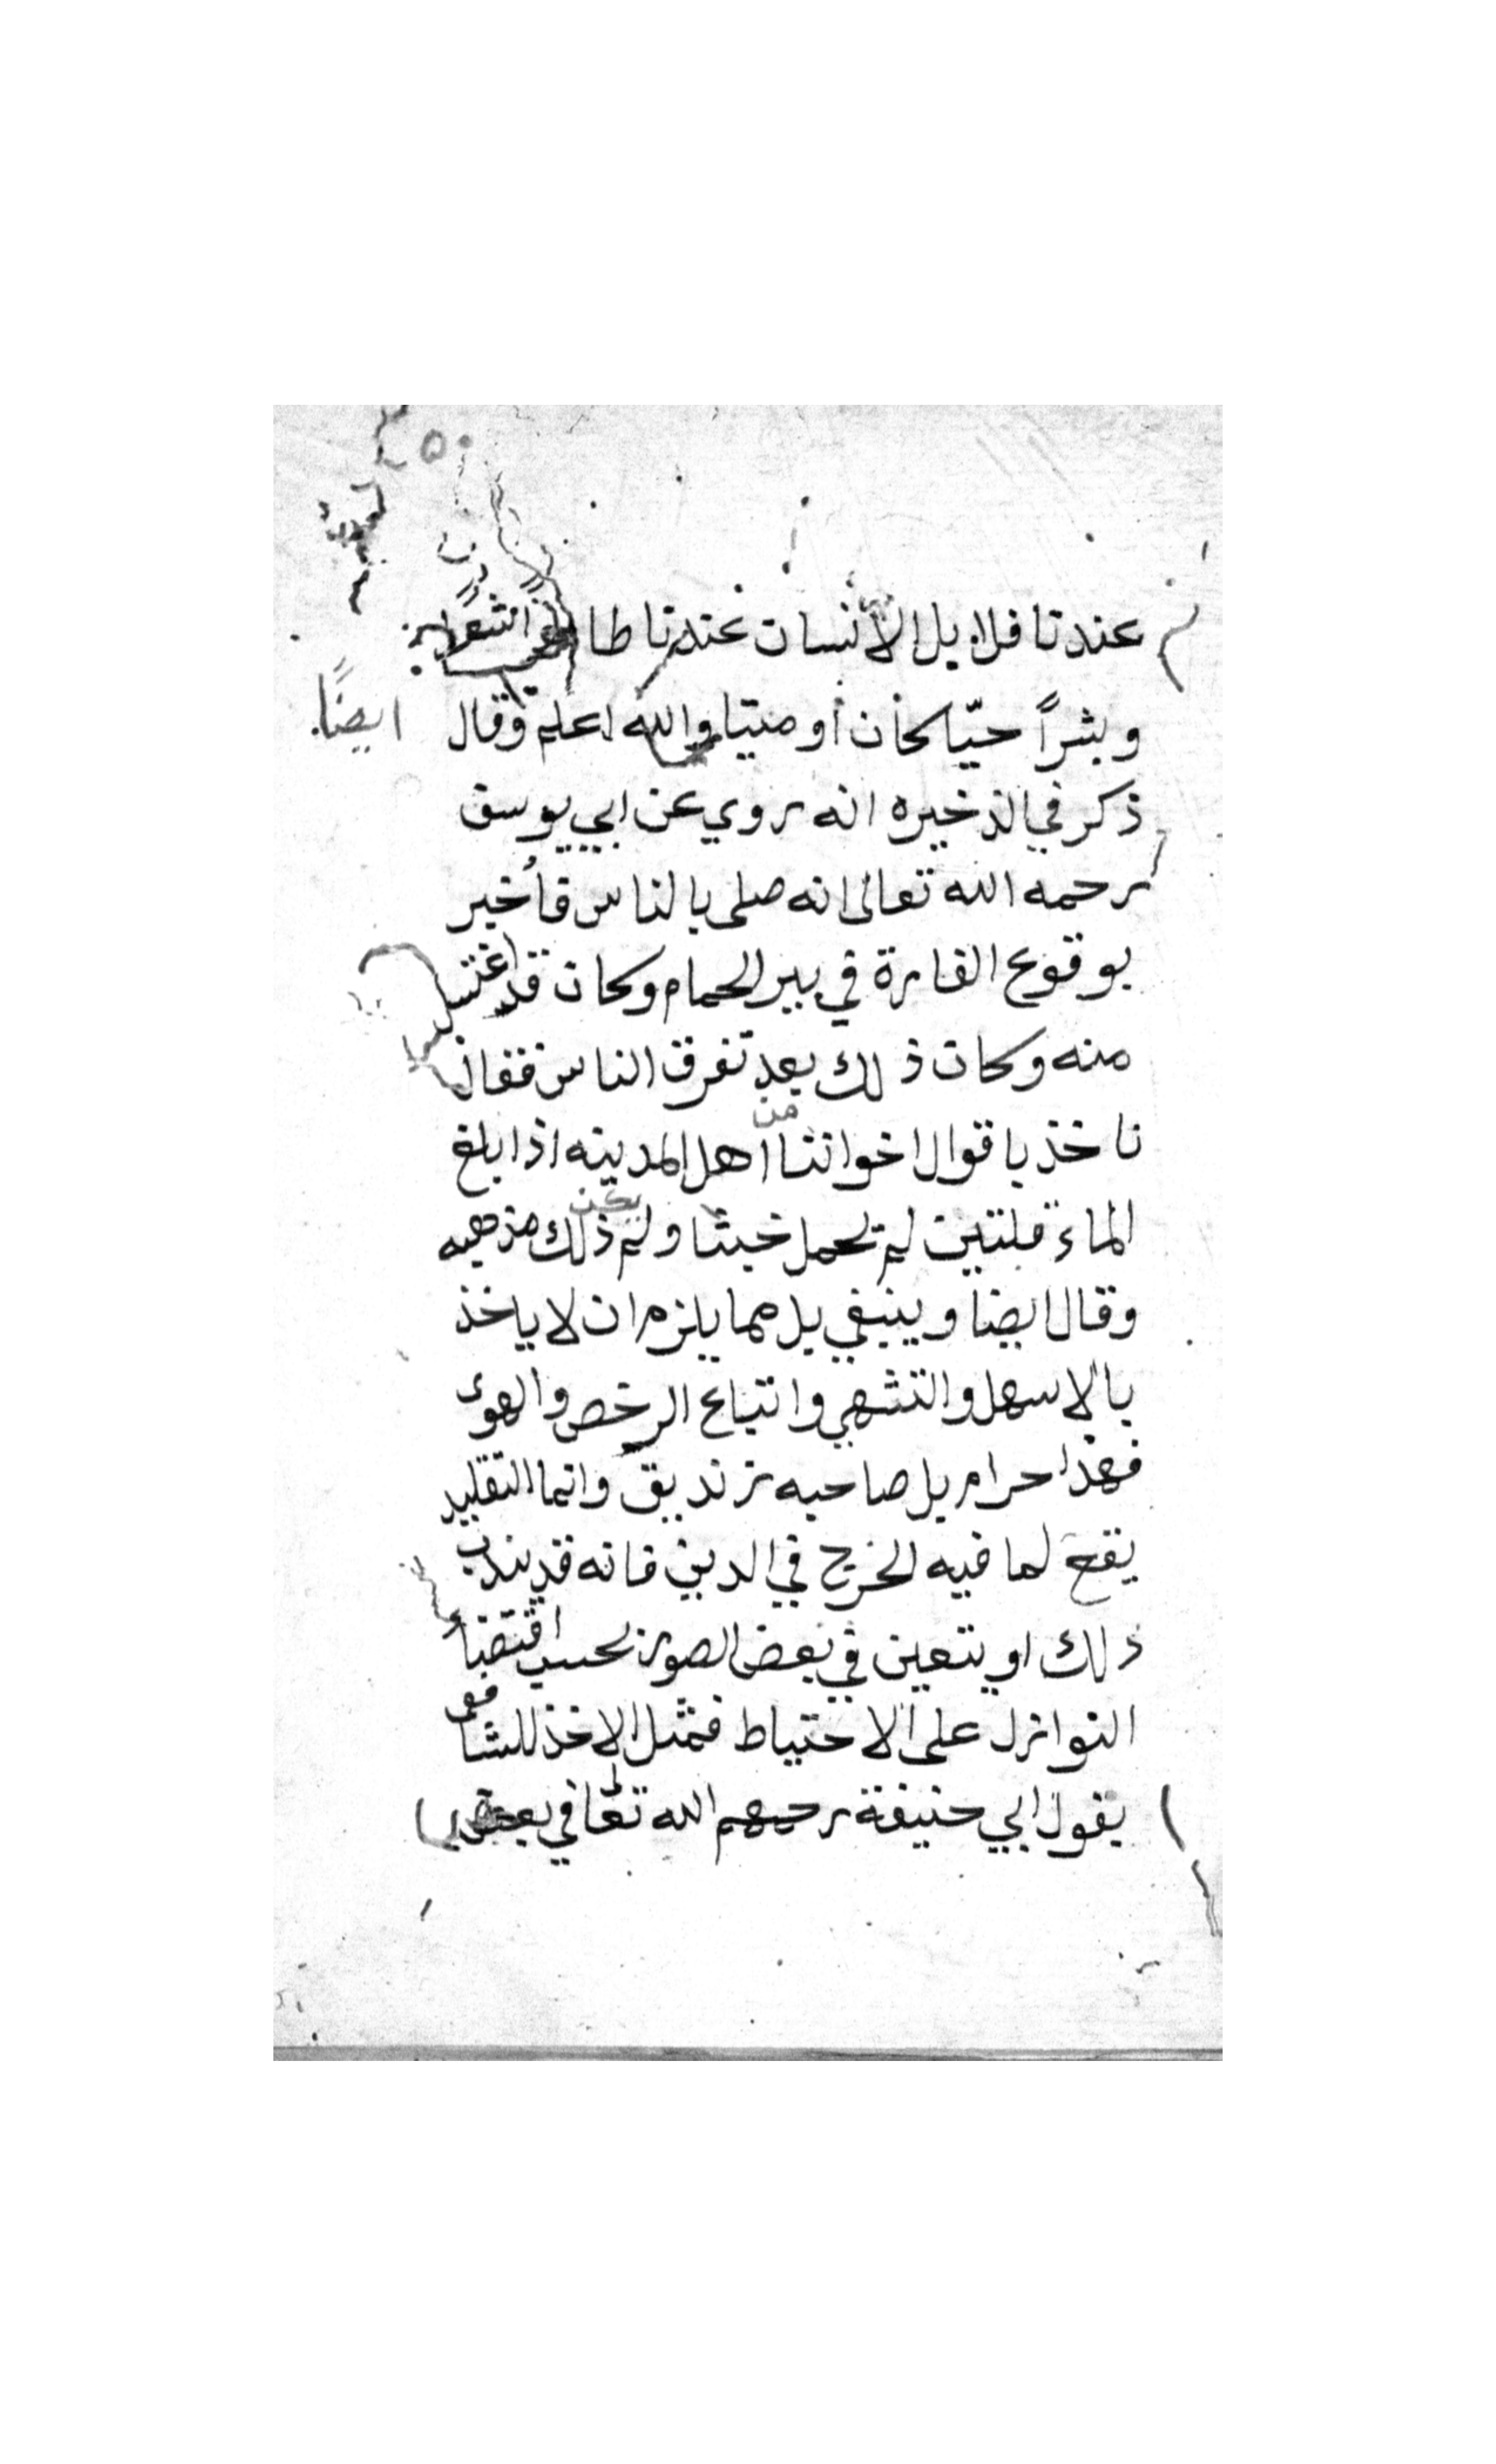 ٢٥٠
عندنا فلا بل الانسان عندنا طاهرًا شعرًا
وبشرًا حيّا كان أو ميتا والله اعلم وقال ايضًا
ذكر في الذخيره انه روي عن ابي يوسف
رحمه الله تعالى انه صلى بالناس فأخبر
بوقوع الفارة في بير الحمام وكان قد اغتسل
منه وكان ذلك بعد تفرق الناس فقال
ناخذ باقوال اخواننا من اهل المدينه اذا بلغ
الماء قلتين لم يحمل خبثا ولم يكن ذلك مذهبه
وقال ايضا وينبغي بل مما يلزم ان لا ياخذ
بالاسهل والتشهي واتباع الرخص والهوى
فهذا حرام بل صاحبه زنديق وانما التقليد
يقع لما فيه الحرج في الدين فانه قد يندب
ذلك او يتعين في بعض الصور بحسب اقتضاء
النوازل على الاحتياط فمثل الاخذ للشافعي
بقول ابي حنيفة رحمهم الله تعالى في بعض